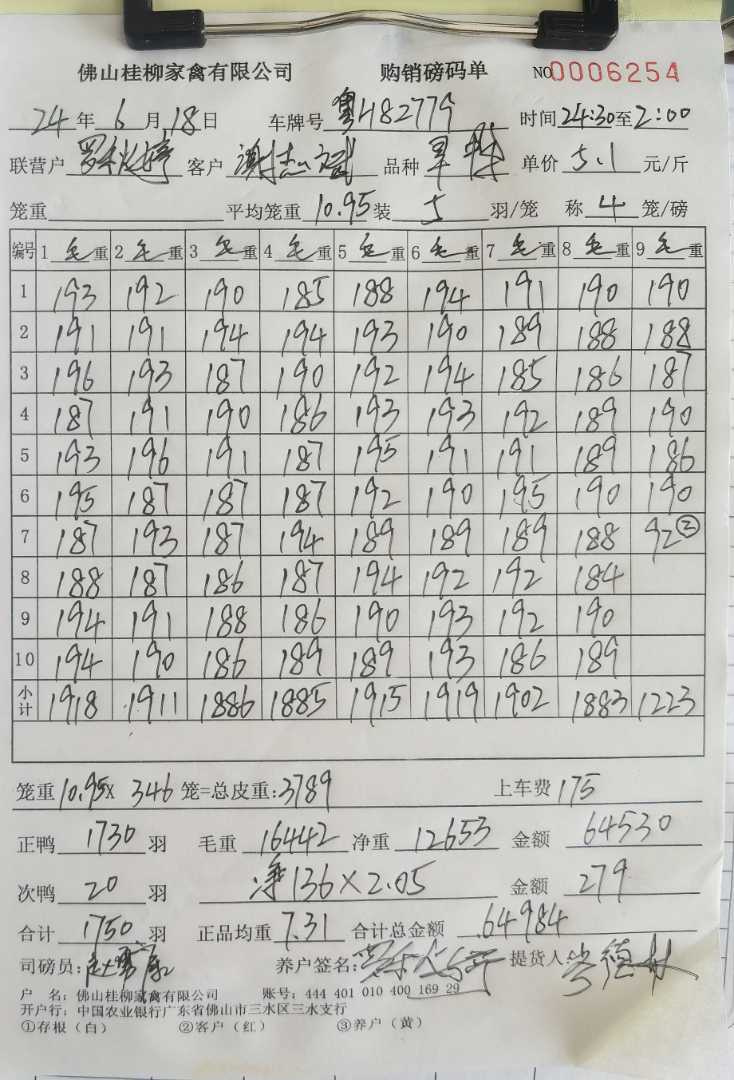 佛山桂柳家禽有限公司 购销磅码单 NO0006254
24年6月18日 车牌号粤H82779 时间24:30至2:00
联营户 客户谢志斌 品种 单价5.1元/斤
笼重 平均笼重10.95装5羽/笼 称4笼/磅
编号 1毛重 2毛重 3毛重 4毛重 5毛重 6毛重 7毛重 8毛重 9毛重
1 193 192 190 185 188 194 191 190 190
2 191 191 194 194 193 190 189 188 188
3 196 193 187 190 192 194 185 186 187
4 187 191 190 186 193 193 192 189 190
5 193 196 191 187 195 191 191 189 186
6 195 187 187 187 192 190 195 190 190
7 187 193 187 194 189 189 189 188 92②
8 188 187 186 187 194 192 192 184
9 194 191 188 186 190 193 192 190
10 194 190 186 189 189 193 186 189
小计 1918 1911 1886 1885 1915 1919 1902 1883 1223
笼重10.95X 346笼=总皮重:3789 上车费175
正鸭1730羽 毛重16442净重12653金额64530
次鸭20羽 净136×2.05 金额279
合计1750羽 正品均重7.31合计总金额64984
司磅员: 养户签名: 提货人:
户 名：佛山桂柳家禽有限公司 账号：444 401 010 400 169 29
开户行：中国农业银行广东省佛山市三水区三水支行
①存根（白） ②客户（红） ③养户（黄）